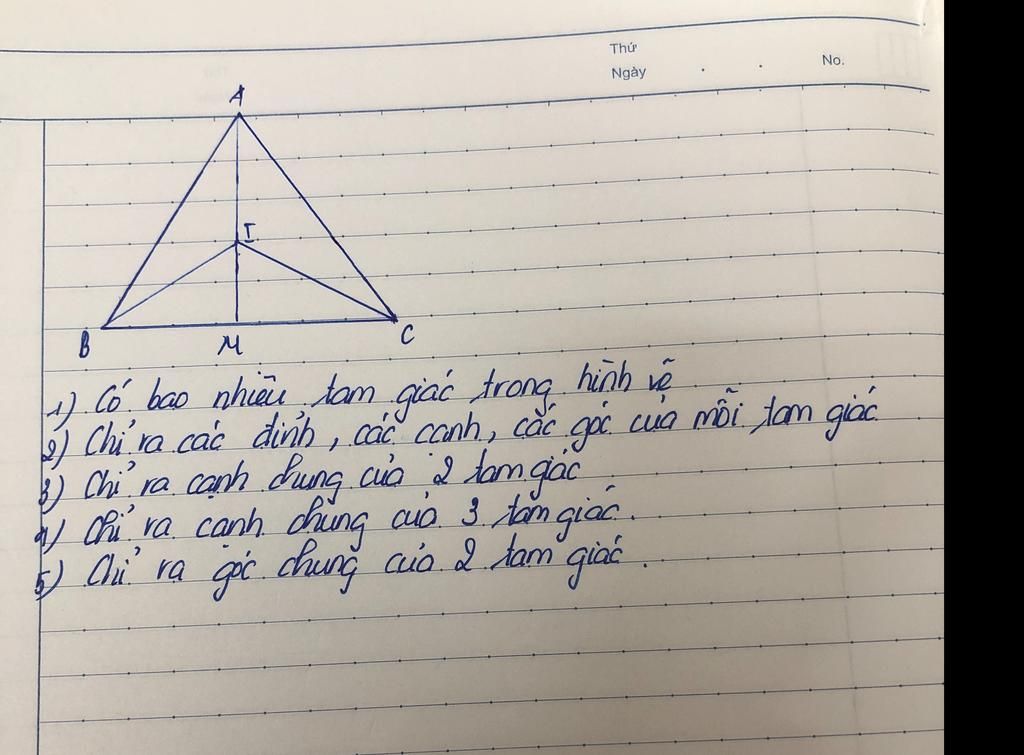 Thứ
Ngày . . No.
A
I
B M C
1) Có bao nhiêu tam giác trong hình vẽ
2) Chỉ ra các đỉnh, các cạnh, các góc của mỗi tam giác
3) Chỉ ra cạnh chung của 2 tam giác
4) Chỉ ra cạnh chung của 3 tam giác.
5) Chỉ ra góc chung của 2 tam giác.